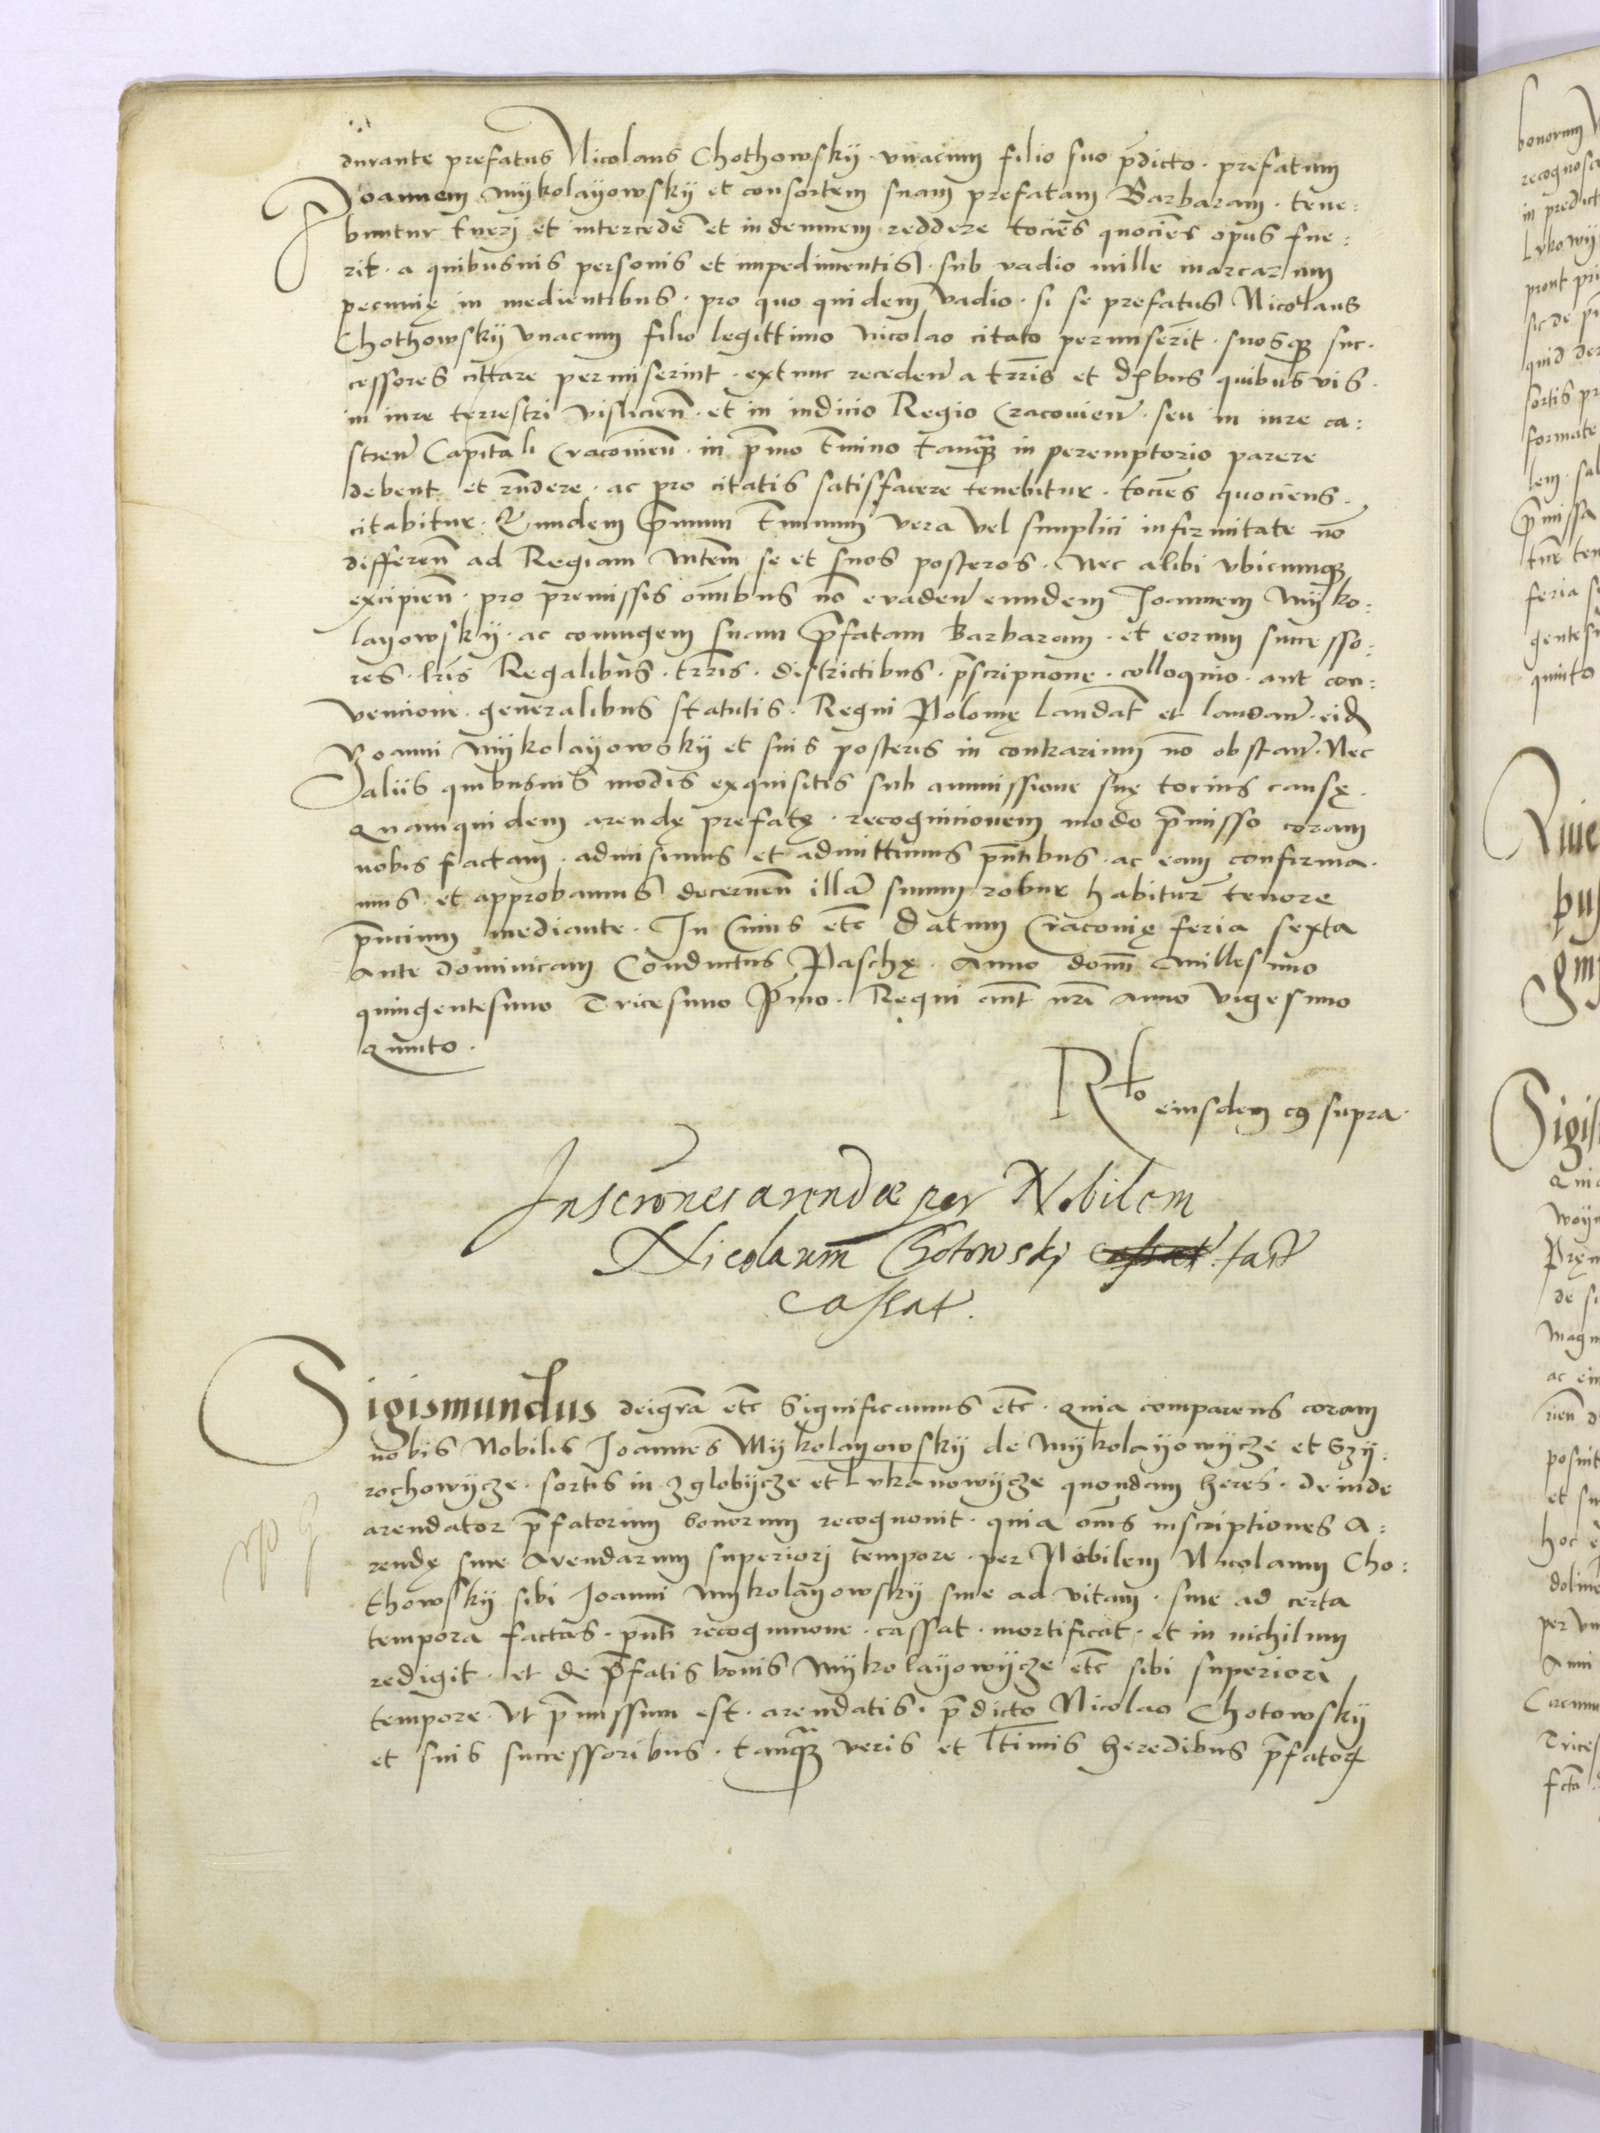 durante prefatus Nicolaus Chothowskÿ · vnacum filio suo p̄dicto · prefatum
Joannem mÿkolaÿowskÿ et consortem suam prefatam Barbaram · tene:
buntur tueri et intercedē et indemnem reddere tociēs quociēs opus fue:
rit · a quibusuis personis et impedimentis · sub vadio mille marcarum
pecunię in medientibus · pro quo quidem vadio · si se prefatus Nicolaus
Chothowskÿ vnacum filio legittimo nicolao citato permiserit · suosqꝫ suc·
cessores cittare permiserint · extunc receden̄ a tr̄ris et
quibusvis ·
in iure terrestri vislicien̄ · et in iudicio Regio Cracouien̄ · seu in iure ca:
stren̄ Capitāli Cracouien̄ · in p̄mo t̄mino tanqꝫ in peremptorio parere
debent et rn̄dere · ac pro citatis satisfacere tenebitur · tociēs quociens ·
citabitur · Qundem p̄mum t̄minum vera vel simplici infirmitate nō
differen̄ ad Regiam mtēm se et suos posteros · Nec alibi vbicumqꝫ
excipien̄ · pro premissis om̄ibus nō evaden̄ eundem Joannem mÿko:
laÿowskÿ · ac coniugem suam p̄fatam Barbaram · et eorum successo:
res · lr̄is Regalibus · tr̄ris · districtibus · p̄scriptione · colloquio · aut con:
vencione · generalibus statutis · Regni Polonię laudat̄ et laudan̄ · eid
Joanni mÿkolaÿowskÿ et suis posteris in contrarium nō obstan̄ · Nec
aliis quibusuis modis exquisitis sub ammissione suę tocius causę ·
Quamquidem arendę prefatę · recognicionem modo p̄misso coram
nobis factam · admisimus et admittimus p̄ntibus · ac eam confirma·
mus · et approbamus decernen̄ illā suum robur habitur̄ tenore
p̄ncium mediante · In Cuius etc̄ Datum Cracouię feria sexta
ante dominicam Conductus Paschę · Anno domī Millesimo
quingentesimo Tricesimo P̄mo · Regni aut̄ nr̄i Anno vigesimo
Quinto ·
R̄to eiusdem cꝰ supra ·
Inscr̄ones arendæ per Nobilem
Nicolaum Chotowskj fact̄
cassat.
Sigismundus deigrā etc̄ Significamus etc̄ · Quia comparens coram
nobis Nobilis Joannes Mÿkolaÿowskÿ de mÿkolaÿowÿcze et Szÿ:
rochowÿcze · sortis in zglobÿcze et Lvkanowÿcze quondam heres · deinde
arendator p̄fatorum bonorum recognouit · quia om̄s inscriptiones A:
rendę siue Arendarum superiori tempore · per Nobilem Nicolaum Cho:
thowskÿ sibi Joanni mÿkolaÿowskÿ siue ad vitam · siue ad certa
tempora factas · p̄nti recognitione · cassat · mortificat · et in nichilum
redigit · et de p̄fatis bonis mÿkolaÿowÿcze etc̄ sibi superiori
tempore · vt p̄missum est · arendatis · p̄dicto Nicolao Chotowskÿ
et suis successoribus · tanqꝫ veris et ltimis heredibus p̄fatorꝝ